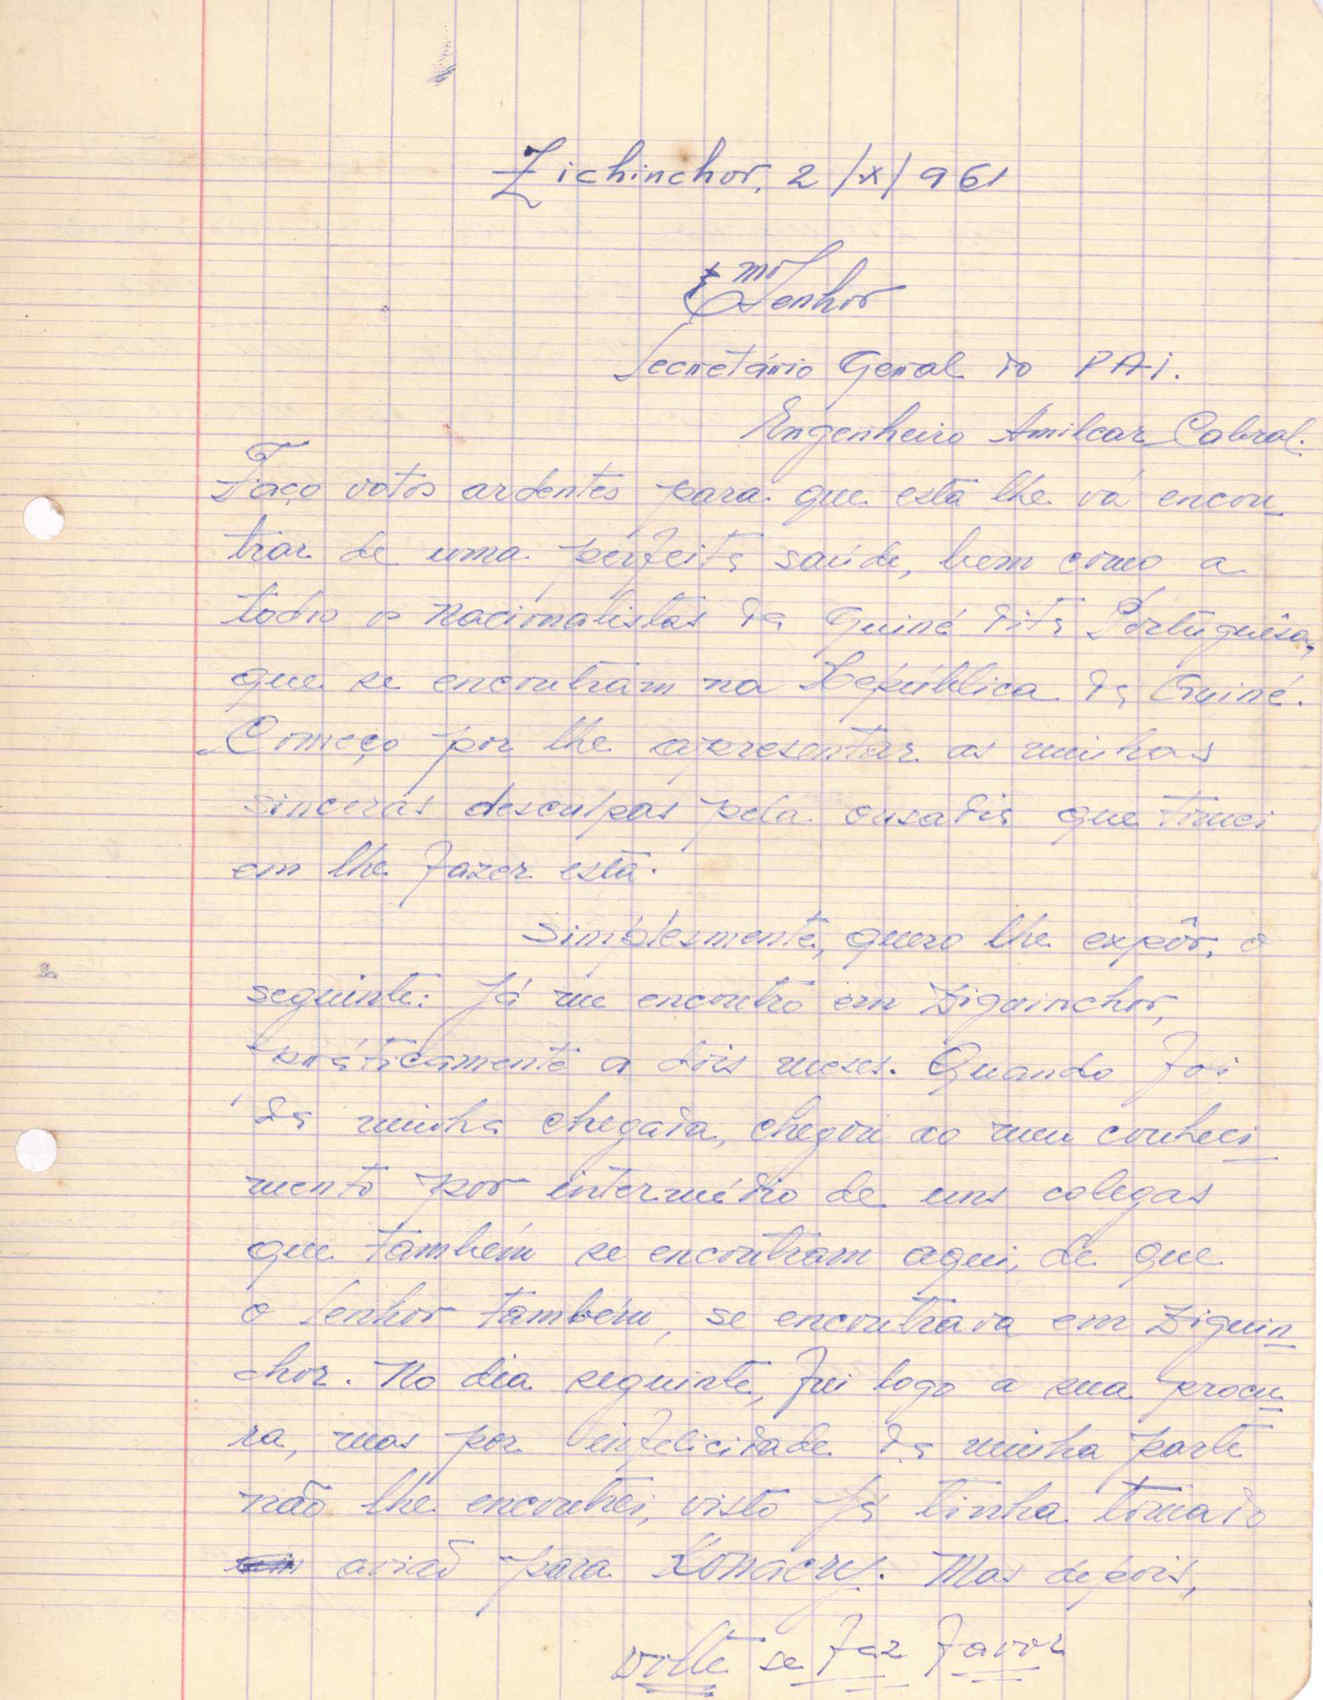 Zichinchor, 2/X/961
Exmo Senhor
Secretário Geral do PAI.
Engenheiro Amilcar Cabral.
Faço votos ardentes para que esta lhe vá encon
trar de uma perfeita saúde, bem como a
todos os nacionalistas da Guiné dita Portuguêsa,
que se encontram na República da Guiné.
Começo por lhe apresentar as minhas
sinceras desculpas pela ousadia que tomei
em lhe fazer esta.
Simplesmente, quero lhe expôr, o
seguinte: Já me encontro em Ziguinchor,
práticamente a dois meses. Quando foi
da minha chegada, chegou ao meu conheci
mento por intermédio de uns colegas
que também se encontram aqui, de que
o Senhor também, se encontrava em Ziguin
chor. No dia seguinte, fui logo a sua procu
ra, mas por infelicidade da minha parte
não lhe encontrei, visto já tinha tomado
avião para Konacry. Mas depois,
volte se faz favor